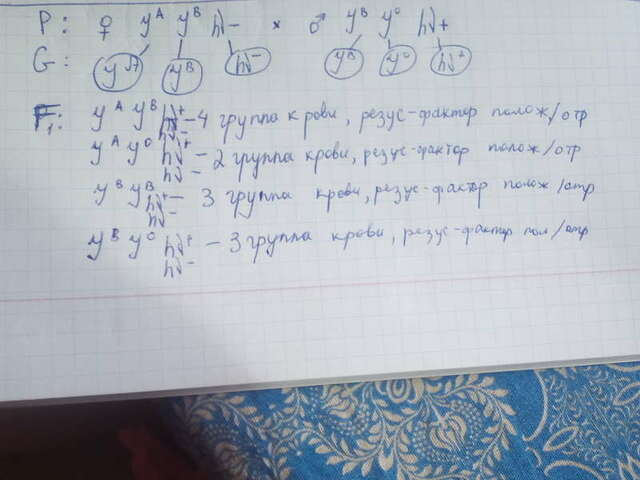 P: ♀ y^A y^B rh- × ♂ y^B y^o rh+
G: y^A y^B rh- y^B y^o rh+
F₁: y^A y^B rh+ rh- - 4 группа крови, резус-фактор полож/отр
y^A y^o rh+ rh- - 2 группа крови, резус-фактор полож/отр
y^B y^B rh+ rh- - 3 группа крови, резус-фактор полож/отр
y^B y^o rh+ rh- - 3 группа крови, резус-фактор пол/отр